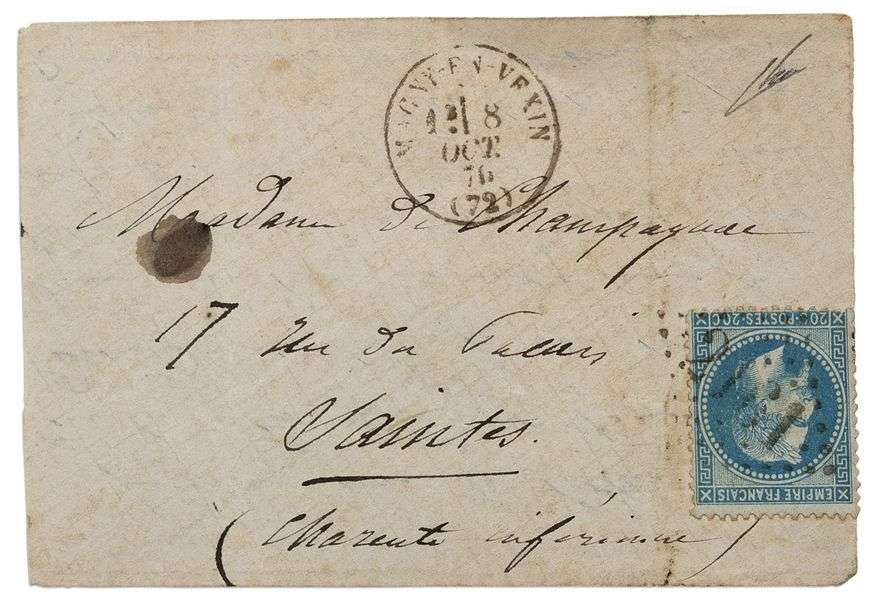 MAGNY-EN-VEXIN
8
OCT.
70
(72)
Madame de Champagnac
17 Rue du Palais
Saintes.
(Charente inférieure)
20·POSTES·20C
EMPIRE FRANÇAIS